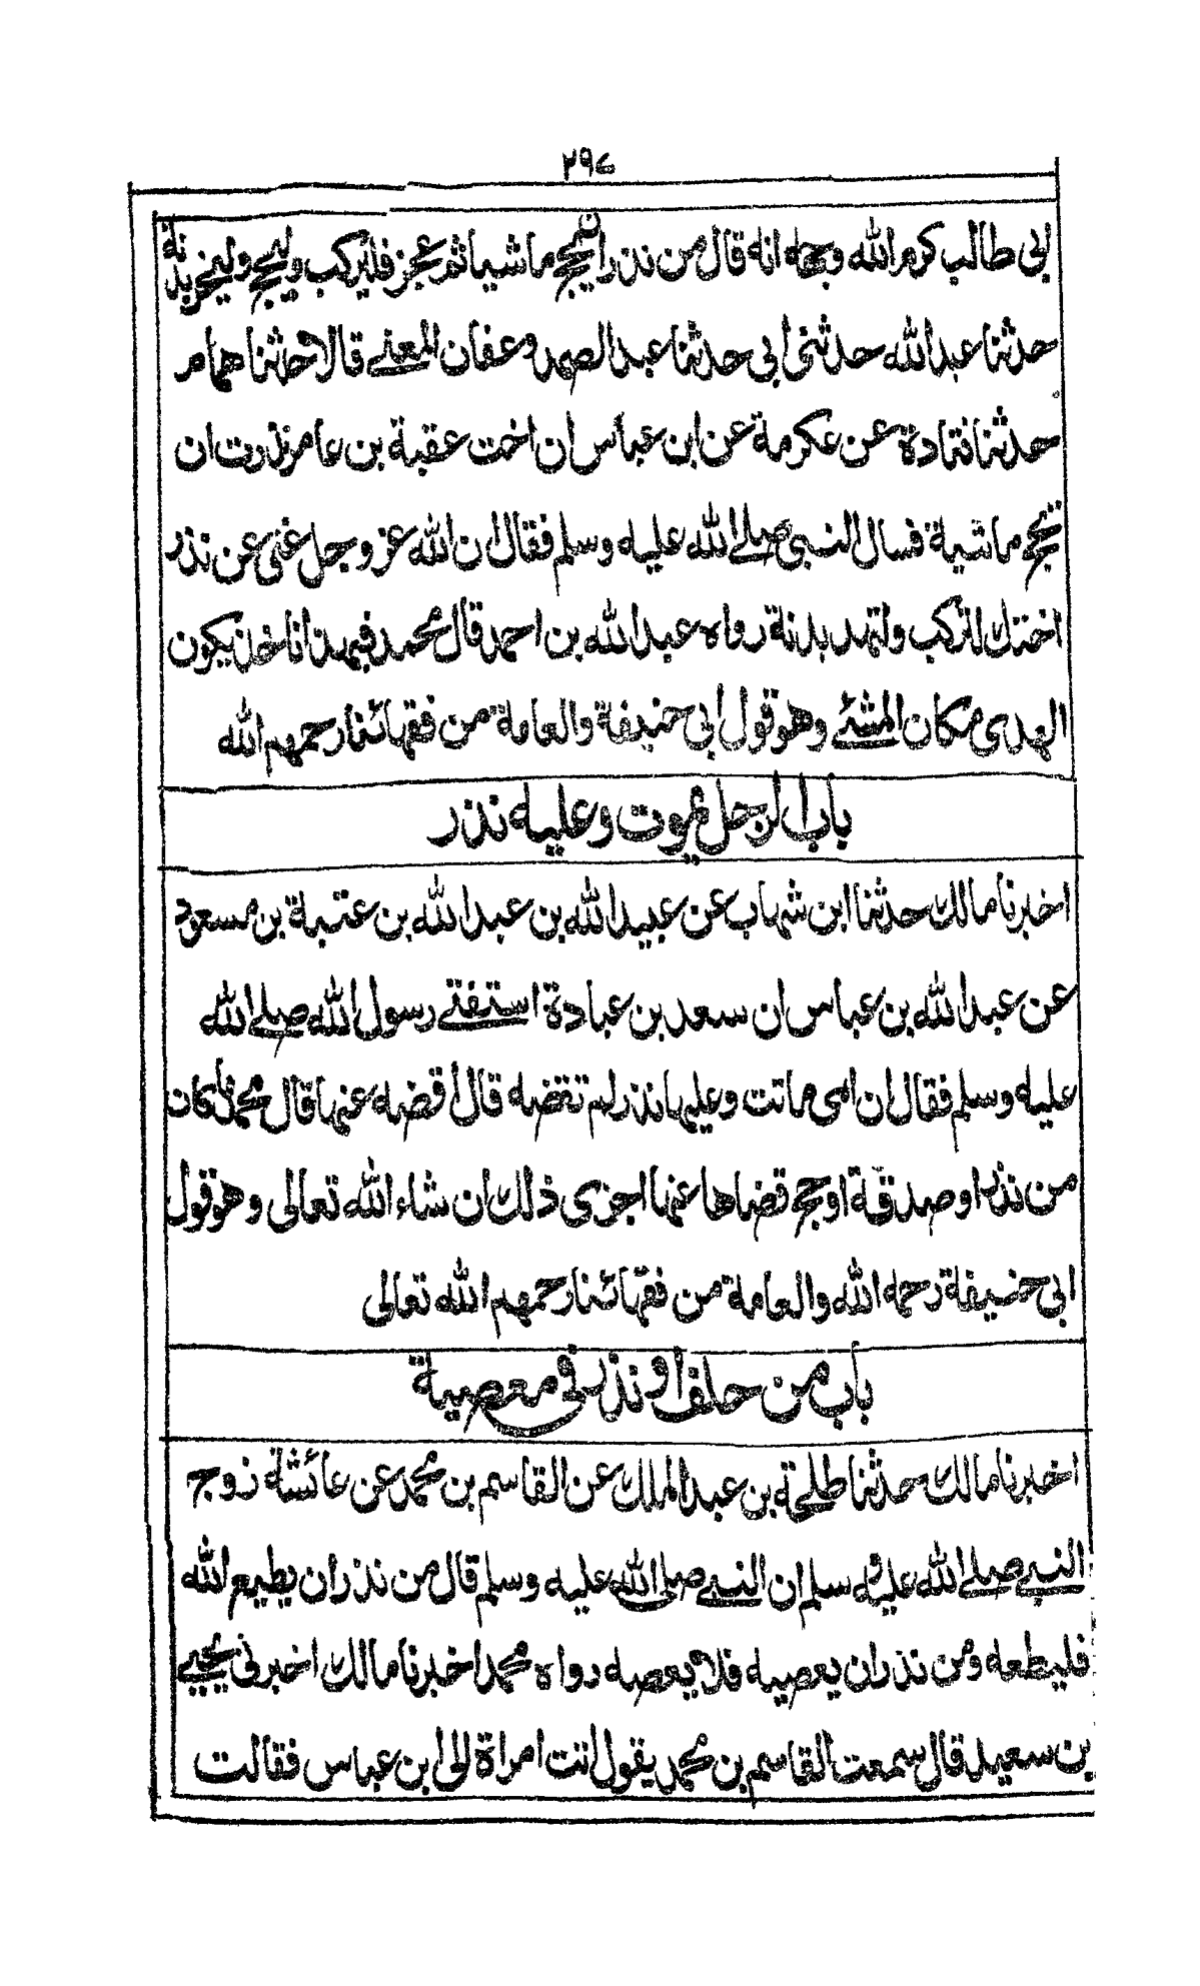 ٢٩٧
ابي طالب كرم الله وجهه انه قال من نذر ان يحج ماشيا ثم عجز فليركب وليحج ولينحر بدنة
حدثنا عبدالله حدثني ابي حدثنا عبدالصمد وعفان المعنے قالا حدثنا همام
حدثنا قتادة عن عكرمة عن ابن عباس ان اخت عقبة بن عامر نذرت ان
تحج ماشية فسال النبي صلے الله عليه وسلم فقال ان الله عز وجل غني عن نذر
اختك لتركب ولتهد بدنة رواه عبدالله بن احمد قال محمد فبهذا ناخذ يكون
الهدي مكان المشئے وهو قول ابي حنيفة والعامة من فقهائنا رحمهم الله
باب الرجل يموت وعليه نذر
اخبرنا مالك حدثنا ابن شهاب عن عبيدالله بن عبدالله بن عتبة بن مسعود
عن عبدالله بن عباس ان سعد بن عبادة استفتے رسول الله صلے الله
عليه وسلم فقال ان امي ماتت وعليها نذر لم تقضه قال اقضه عنها قال محمد ما كان
من نذر او صدقة او حج قضاها عنها اجزى ذلك ان شاء الله تعالى وهو قول
ابي حنيفة رحمه الله والعامة من فقهائنا رحمهم الله تعالى
باب من حلف او نذر في معصية
اخبرنا مالك حدثنا طلحة بن عبدالملك عن القاسم بن محمد عن عائشة زوج
النبے صلے الله عليه وسلم ان النبے صلى الله عليه وسلم قال من نذر ان يطيع الله
فليطعه ومن نذر ان يعصيه فلا يعصه رواه محمد اخبرنا مالك اخبرني يحيے
بن سعيد قال سمعت القاسم بن محمد يقول اتت امراة الى ابن عباس فقالت